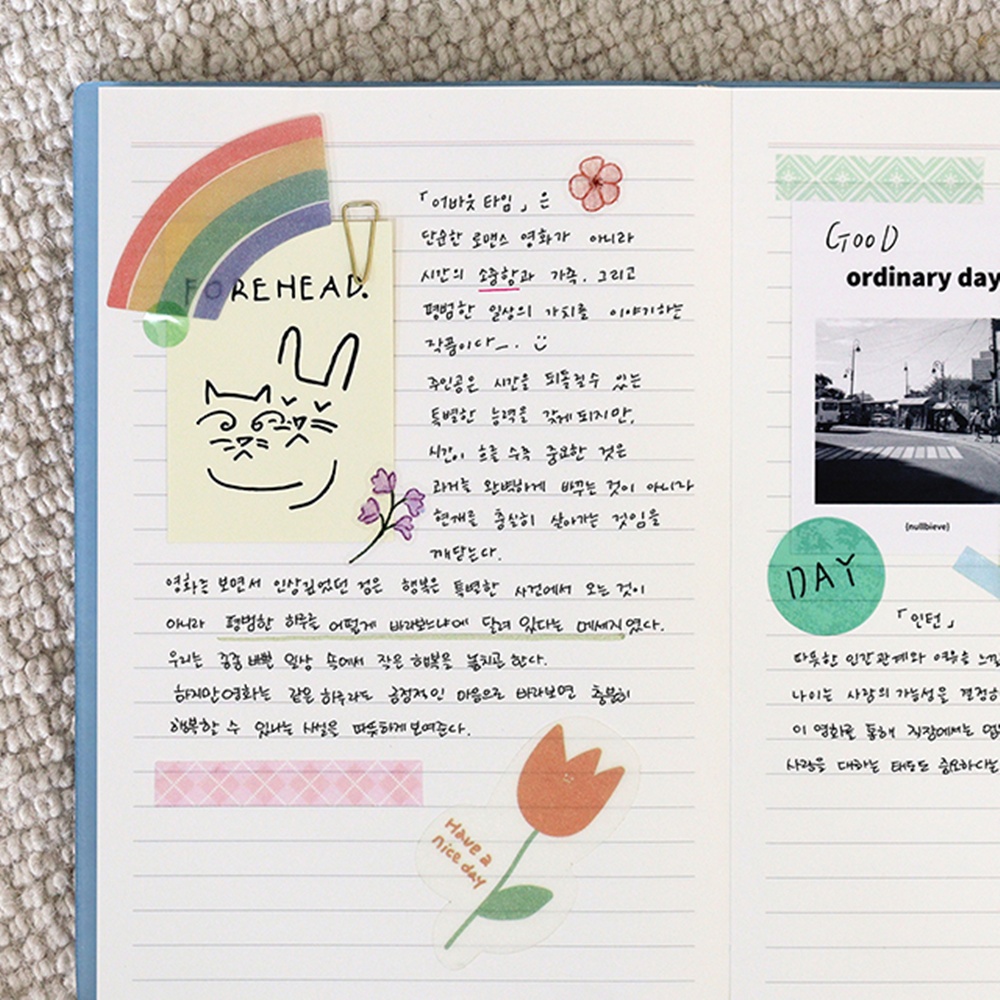 FOREHEAD.
「어바웃 타임」은
단순한 로맨스 영화가 아니라
시간의 소중함과 가족, 그리고
평범한 일상의 가치를 이야기하는
작품이다
주인공은 시간을 되돌릴 수 있는
특별한 능력을 갖게 되지만,
시간이 흐를 수록 중요한 것은
과거를 완벽하게 바꾸는 것이 아니라
현재를 충실히 살아가는 것임을
깨닫는다.
영화를 보면서 인상깊었던 점은 행복은 특별한 사건에서 오는 것이
아니라 평범한 하루를 어떻게 바라보느냐에 달려 있다는 메세지였다.
우리는 종종 바쁜 일상 속에서 작은 행복을 놓치곤 한다.
하지만 영화는 같은 하루라도 긍정적인 마음으로 바라보면 충분히
행복할 수 있다는 사실을 따뜻하게 보여준다.
Have a
nice day
GOOD
ordinary day
(nullbieve)
DAY
「인턴」
따뜻한 인간관계와 여유를
나이는 사람의 가능성을
이 영화를 통해 직장에서는
사람을 대하는 태도도 중요하다는